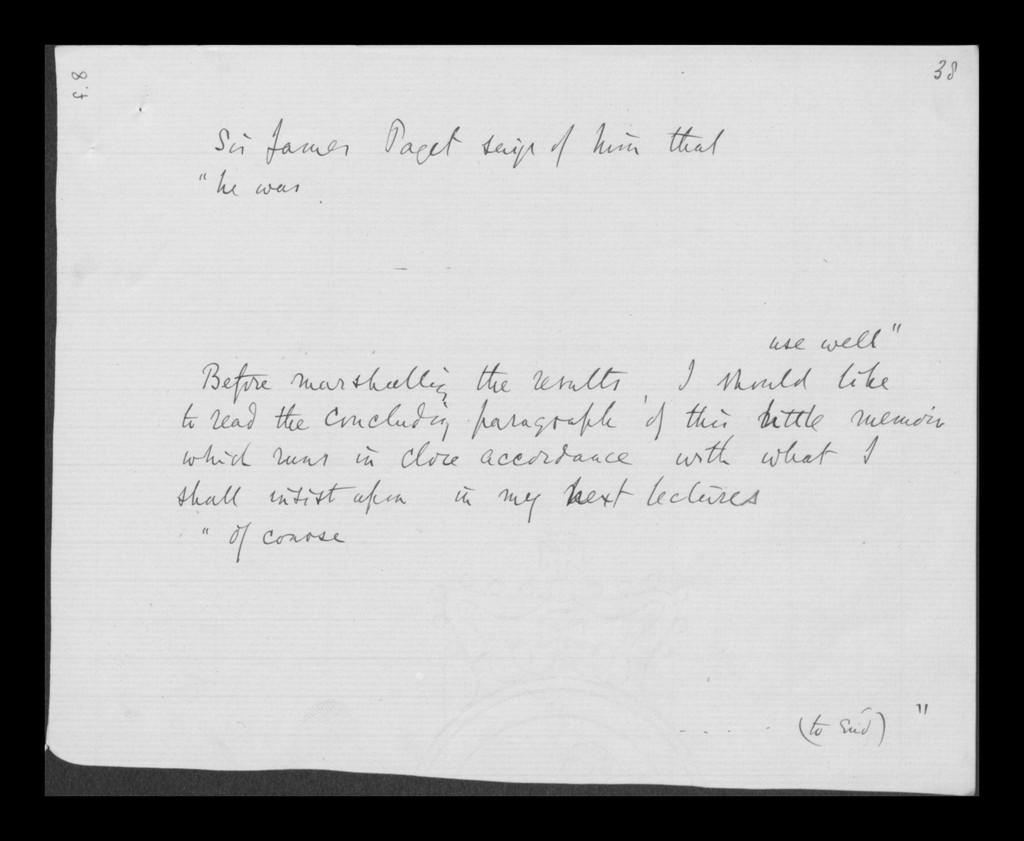 f.8
38
Sir James Paget says of him that
"he was
use well"
Before marshalling the results, I should like
to read the concluding paragraph of this little memoir
which runs in close accordance with what I
shall insist upon in my next lectures
" Of course
- . . . . (to End) "